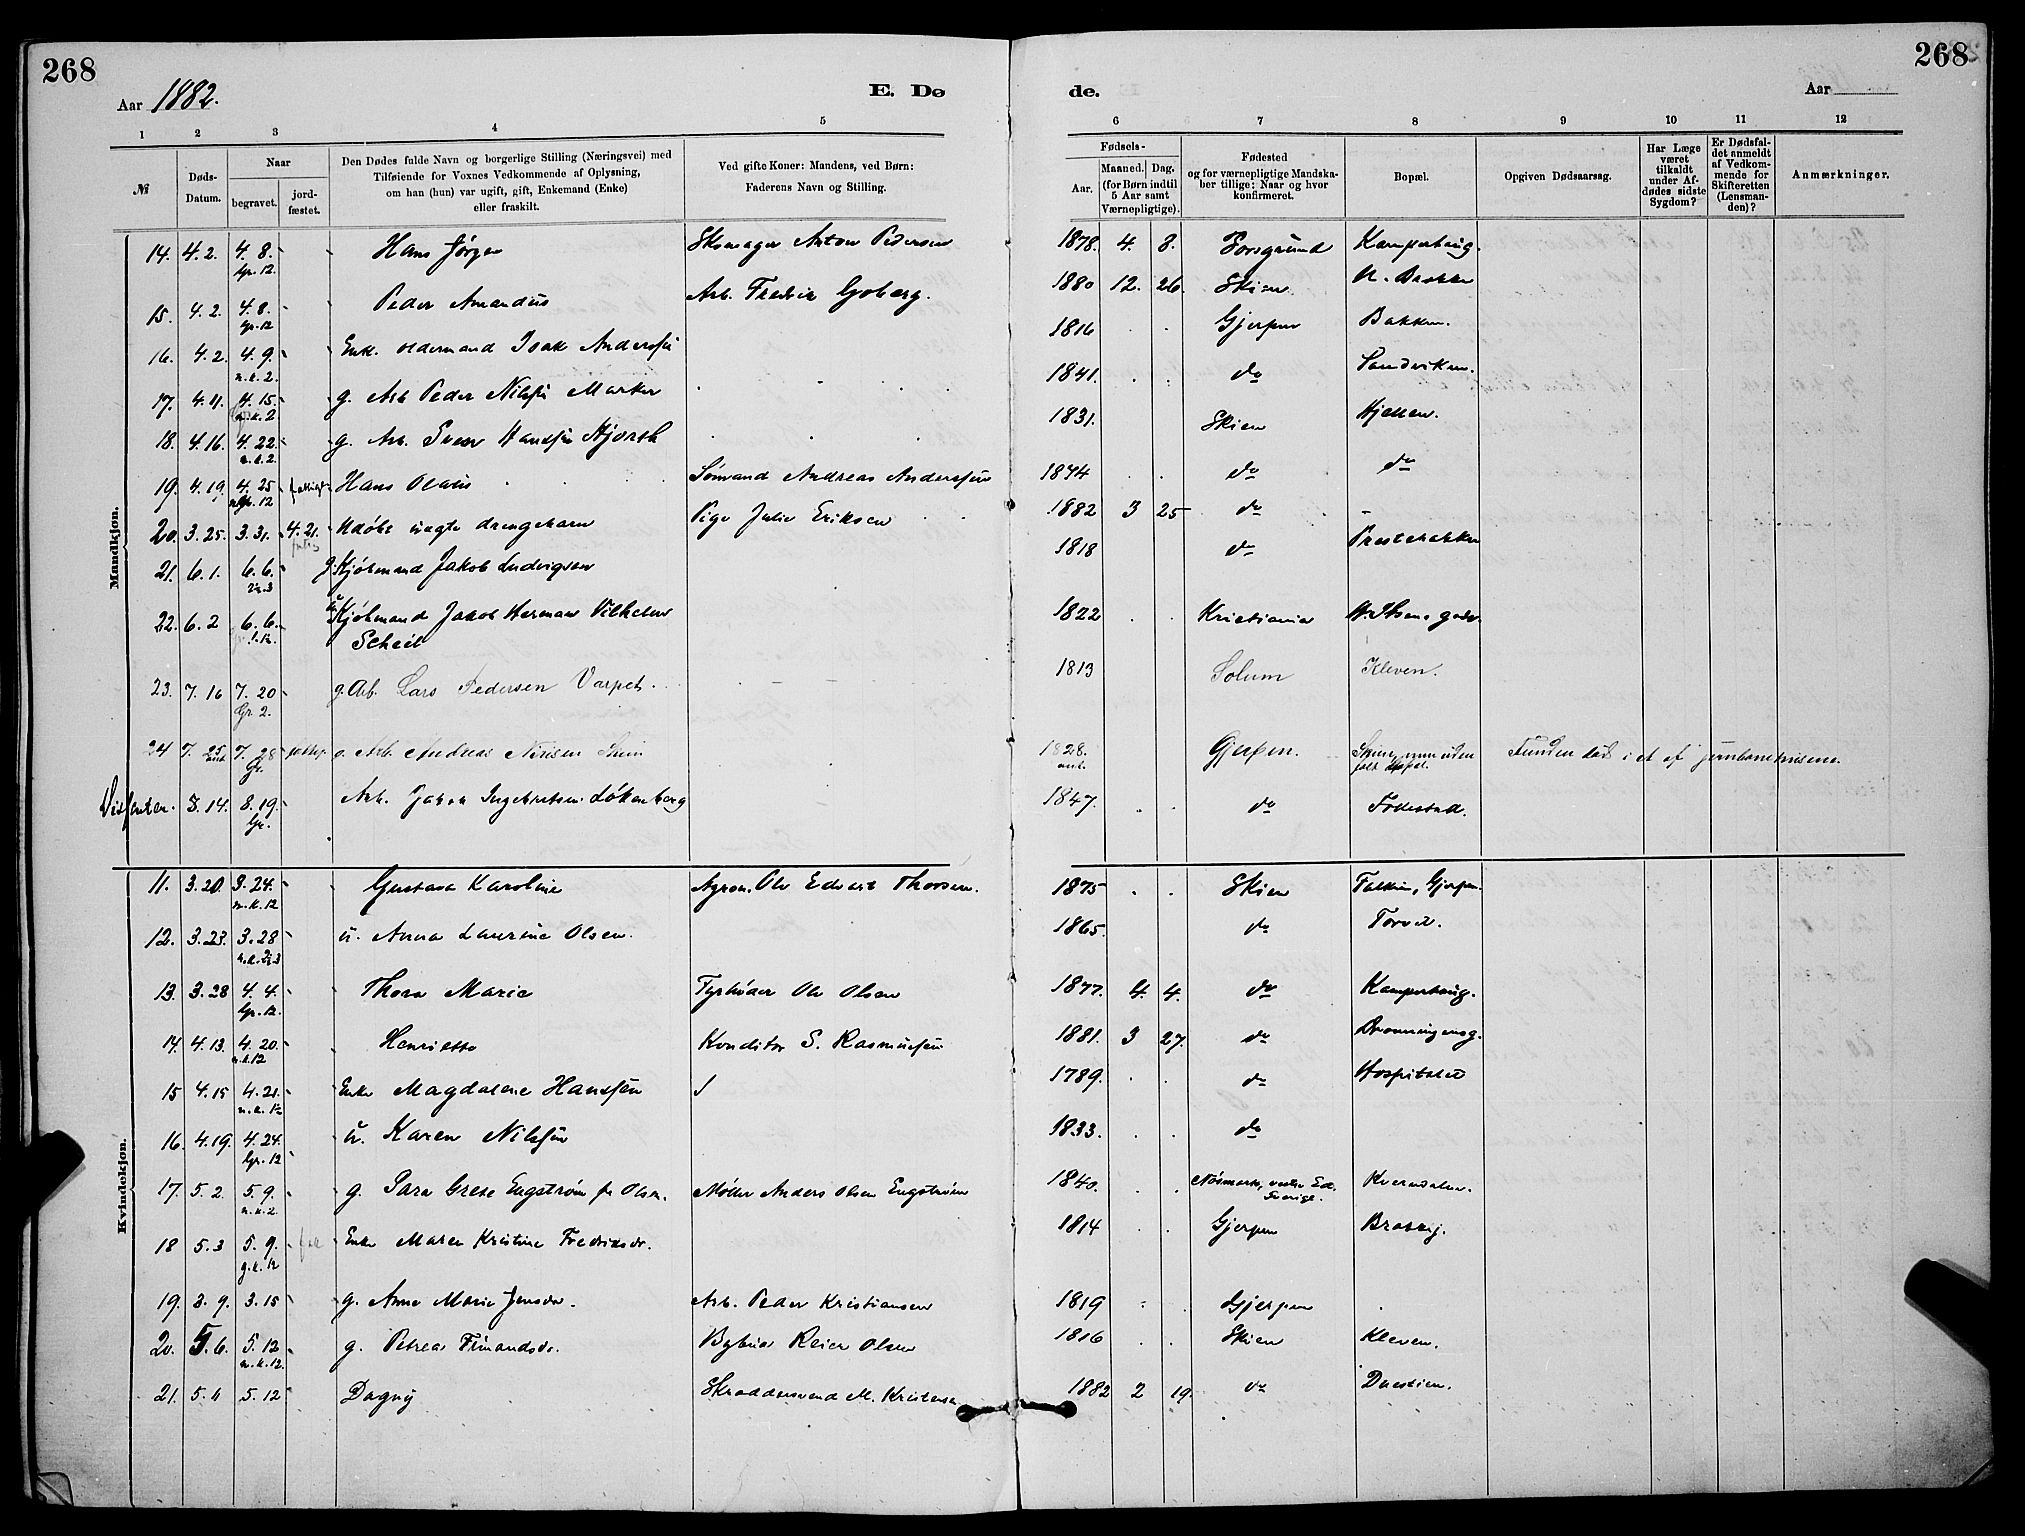 268
268
Aar 1882.
E. Dø
de.
Aar
1 2 3 4 5 6 7 8 9 10 11 12
№
Døds-Datum.
Naar
begravet.
jord-fæstet.
Den Dødes fulde Navn og borgerlige Stilling (Næringsvei) med
Tilføiende for Voxnes Vedkommende af Oplysning,
om han (hun) var ugift, gift, Enkemand (Enke)
eller fraskilt.
Ved gifte Koner: Mandens, ved Børn:
Faderens Navn og Stilling.
Fødsels-
Aar.
Maaned. Dag.
(for Børn indtil
5 Aar samt
Værnepligtige).
Fødested
og for værnepligtige Mandska-
ber tillige: Naar og hvor
konfirmeret.
Bopæl.
Opgiven Dødsaarsag.
Har Læge
været
tilkaldt
under Af-
dødes sidste
Sygdom?
Er Dødsfal-
det anmeldt
af Vedkom-
mende for
Skifteretten
(Lensman-
den)?
Anmærkninger.
Mandkjøn.
14. 4.2. 4.8. Gr. 12. Hans Jørgen Skomager Anton Pedersen 1878. 4. 8. Porsgrund Kamperhaug.
15. 4.2. 4.8. Gr. 12 Peder Amandus Arb. Fredrik Goberg. 1880 12. 26. Skien N. Brekke
16. 4.2. 4.9. n.k.2. Enk. oldermand Isak Anderssøn 1816 Gjerpen Bakken.
17. 4.11. 4.15. n.k.2 g. Arb Peder Nilssøn Marker 1841. do Sandviken.
18. 4.16. 4.22. n.k.2. g. Arb. Svend Hanssøn Hjorth 1831. Skien Hjellen.
19. 4.19. 4.25 Gr. 12 Hans Olaus Sømand Andreas Anderssøn 1874 do do
20. 3.25. 3.31. 4.21. Udøbt uægte drengebarn Pige Julie Eriksen 1882 3 25 do -
21. 6.1. 6.6. g. Kjøbmand Jakob Ludvigsen 1818 do Prestebakken
22. 6.2 6.6. Kjøbmand Jakob Herman Vilhelm
Scheel 1822 Kristiania H. Ibsens gade.
23. 7.16 7.20 Gr. 2. g. Arb. Lars Pedersen Varpet. 1813 Solum Kleven.
24 7.25 ant. 7.28 Gr. g. Arb. Andreas Nilsen 1828. ant. Gjerpen. Skien, men uden
fast Bopæl. Funden død i et af jernbanehusene.
8.14. 8.19. Gr. Arb. Johan Ingebretsen Løkenberg 1847. do Fødested.
Kvindekjøn.
11. 3.20. 3.24. n.k.12 Gustava Karoline Agron. Ole Edvart Thorsen. 1875 Skien Falkum, Gjerpen.
12. 3.23. 3.28 ü. Anna Laurine Olsen. 1865. do Torvet.
13. 3.28 4.4. Gr. 12. Thora Marie Fyrbøder Ole Olsen 1877. 4. 4. do Kamperhaug.
14. 4.13. 4.20. n.k.12 Henriette Konditor S. Rasmussøn 1881. 3 27. do Dronningensg.
15 4.15 4.21. n.k.12 Enke Magdalene Hanssøn 1789. do Hospitalet
16. 4.19. 4.24. Gr. 12 ü. Karen Nilssøn 1833. do
17. 5.2. 5.9. n.k.2. g. Sara Grete Engstrøm f. Olsen. Møller Anders Olsen Engstrøm 1840. Nøsmark, vestre Ed.
Sverige.
18 5.3 5.9. g.k.12 Enke Maren Kristine Fredriksdr. 1814 Gjerpen
19. 3.9. 3.15 g. Anne Marie Jensdr. Arb. Peder Kristiansen 1819 Gjerpen
20. 5.6. 5.12 n.k.12. g. Petrea Bybud Reier Olsen 1816 Skien Kleven.
21. 5.11 5.12 Dagny Skræddersvend M. Kristensen 1882 2 19. do